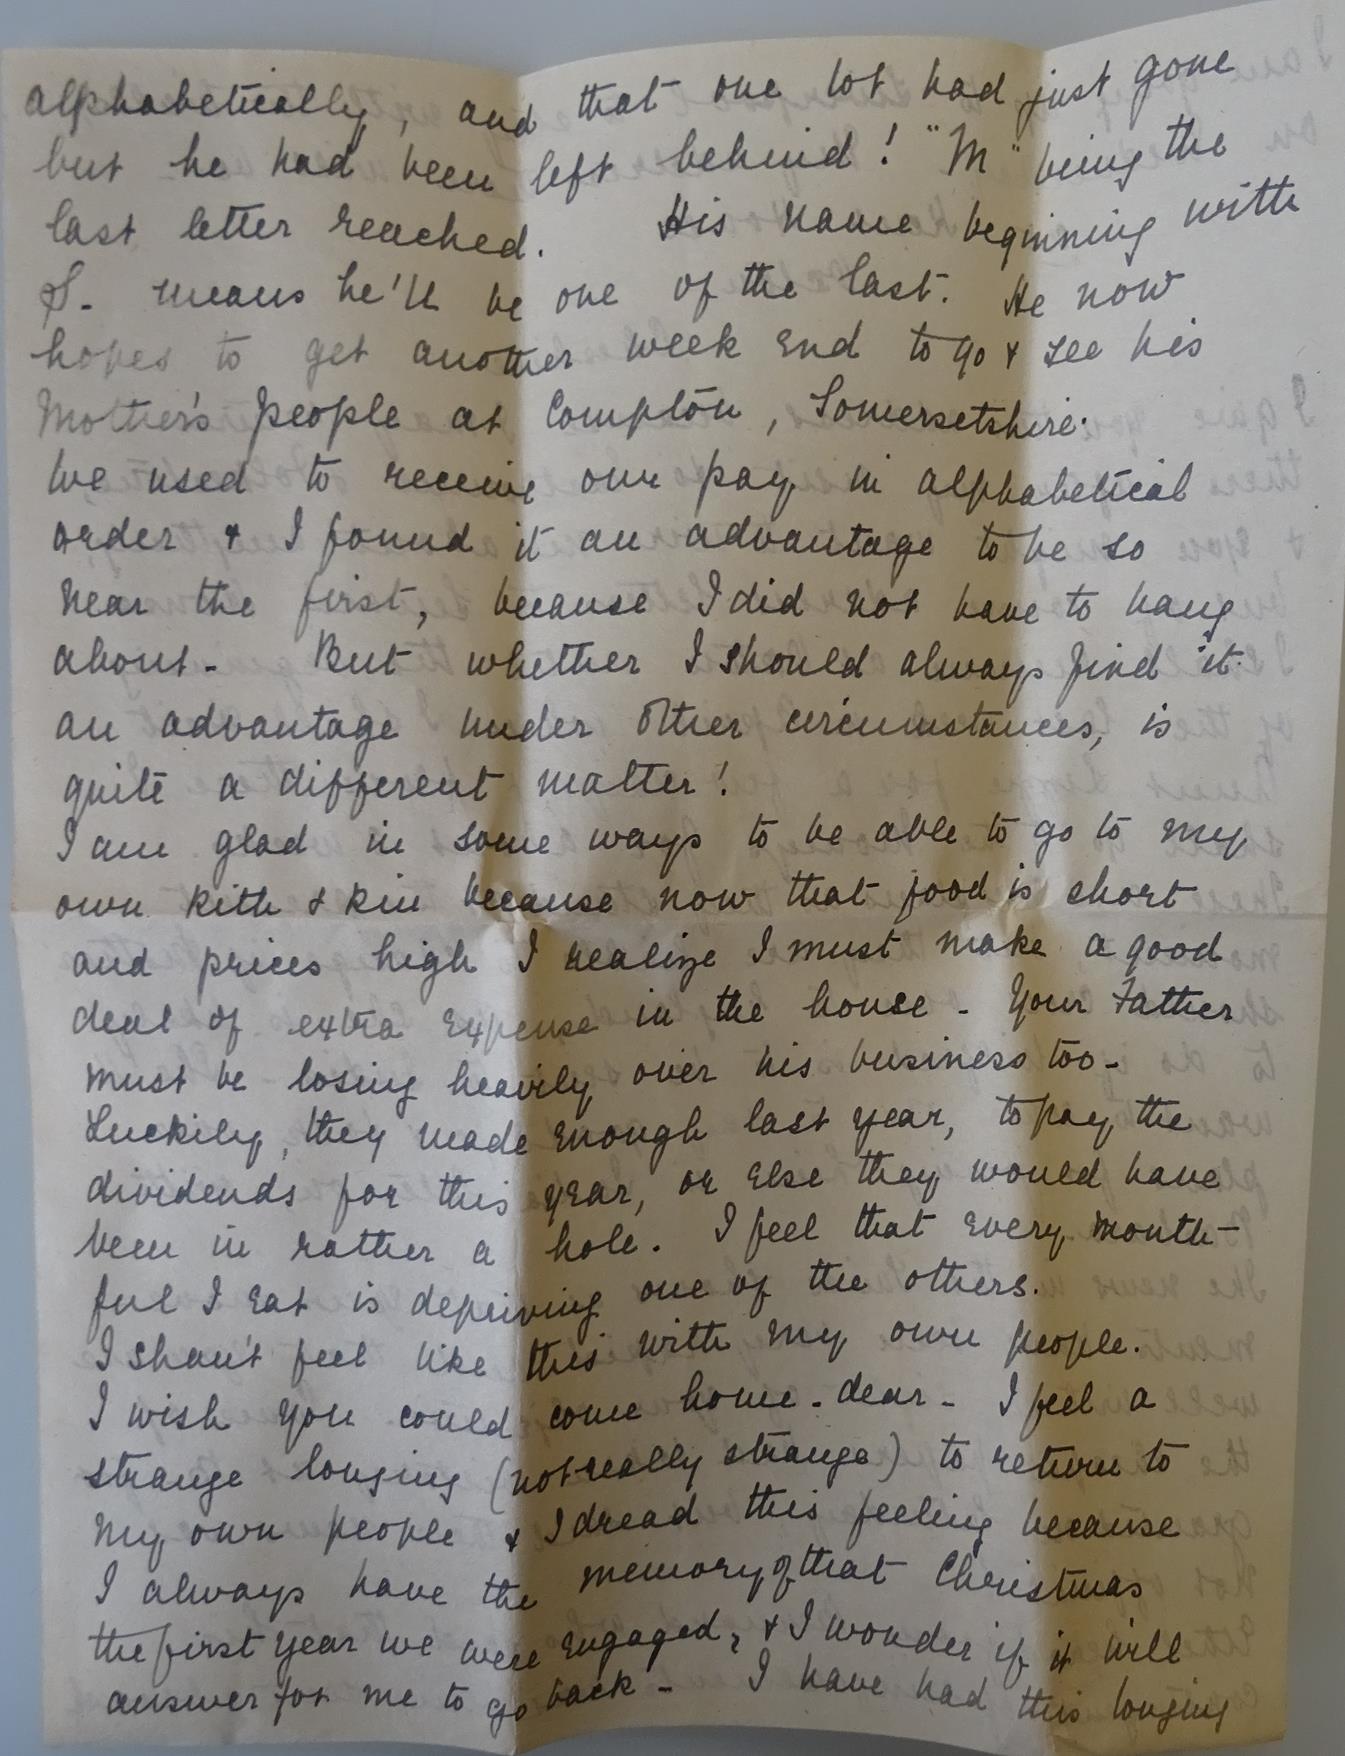 alphabetically, and that one lot had just gone
but he had been left behind! "M" being the
last letter reached. His name beginning with
S. means he'll be one of the last. He now
hopes to get another week end to go & see his
Mother's people at Compton, Somersetshire.
We used to receive our pay in alphabetical
order & I found it an advantage to be so
near the first, because I did not have to hang
about. But whether I should always find it
an advantage under other circumstances, is
quite a different matter!
I am glad in some ways to be able to go to my
own kith & kin because now that food is short
and prices high I realize I must make a good
deal of extra expense in the house - Your Father
must be losing heavily over his business too -
Luckily, they made enough last year, to pay the
dividends for this year, or else they would have
been in rather a hole. I feel that every mouth-
ful I eat is depriving one of the others.
I shan't feel like this with my own people.
I wish you could come home - dear - I feel a
strange longing (not really strange) to return to
my own people & I dread this feeling because
I always have the memory of that Christmas
the first year we were engaged, & I wonder if it will
answer for me to go back - I have had this longing